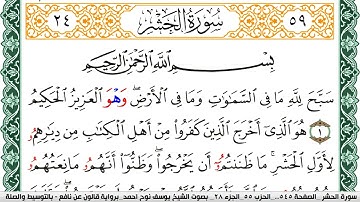 ٢٤ سُورَةُ الحَشْرِ ٥٩
بِسْمِ اللَّهِ الرَّحْمَٰنِ الرَّحِيمِ
سَبَّحَ لِلَّهِ مَا فِي السَّمَٰوَٰتِ وَمَا فِي الْأَرْضِ وَهْوَ الْعَزِيزُ الْحَكِيمُ
١ هُوَ الَّذِي أَخْرَجَ الَّذِينَ كَفَرُوا مِنْ أَهْلِ الْكِتَٰبِ مِن دِيَٰرِهِمُ
لِأَوَّلِ الْحَشْرِ مَا ظَنَنتُمُ أَن يَخْرُجُوا وَظَنُّوا أَنَّهُمُ مَانِعَتُهُمُ
سورة الحشر _ الصفحة ٥٤٥ .. الحزب ٥٥ الجزء ٢٨ _ بصوت الشيخ يوسف نوح أحمد _ برواية قالون عن نافع - بالتوسيط والصلة